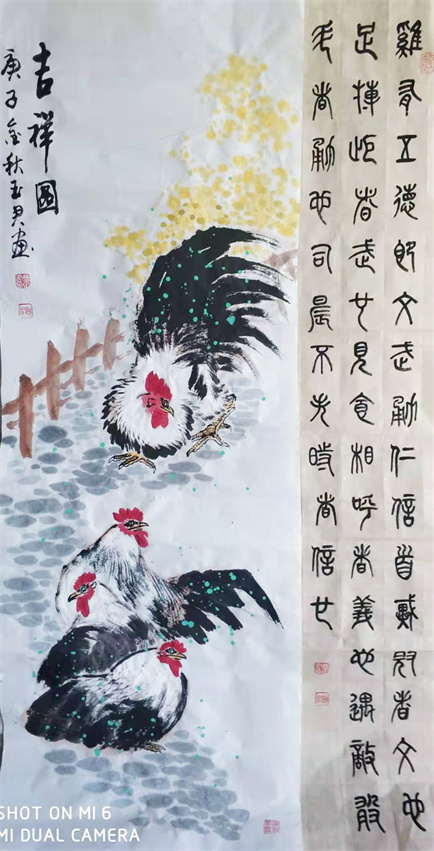 吉祥圖
庚子金秋玉画
雞有五德即文武勇仁信首戴冠者文也
足搏距者武也見食相呼者義也遇敵敢
者勇也司晨不失時者信也
SHOT ON MI 6
MI DUAL CAMERA